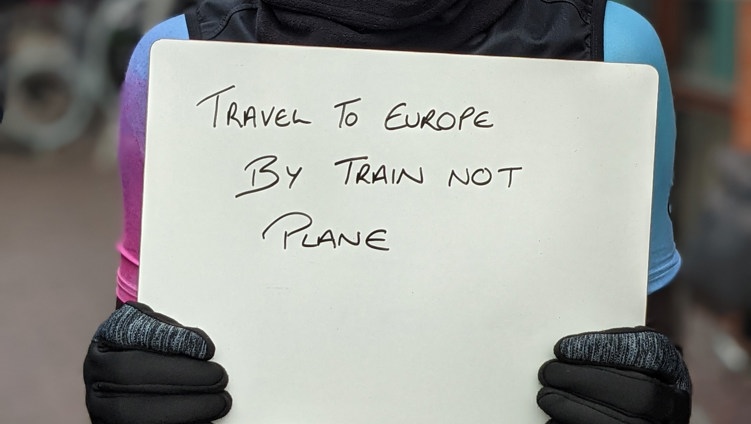 TRAVEL TO EUROPE
BY TRAIN NOT
PLANE